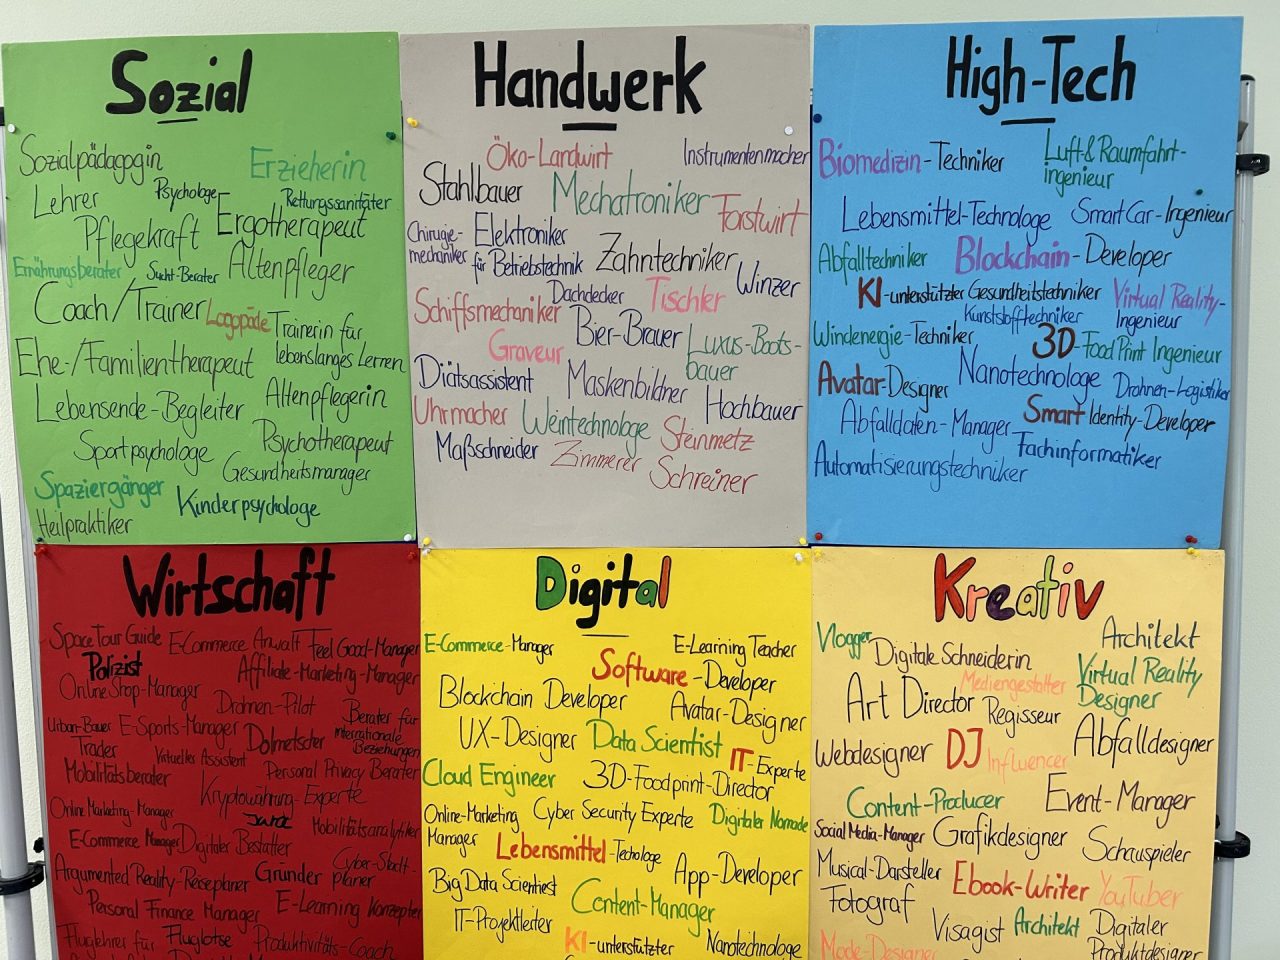 Sozial
Sozialpädagogin
Erzieherin
Lehrer
Psychologe
Rettungssanitäter
Pflegekraft
Ergotherapeut
Ernährungsberater
Sucht-Berater
Altenpfleger
Coach/Trainer
Logopäde
Trainerin für
lebenslanges Lernen
Ehe-/Familientherapeut
Lebensende-Begleiter
Altenpflegerin
Sportpsychologe
Psychotherapeut
Gesundheitsmanager
Spaziergänger
Kinderpsychologe
Heilpraktiker
Handwerk
Öko-Landwirt
Instrumentenmacher
Stahlbauer
Mechatroniker
Forstwirt
Chirugie-
mechaniker
Elektroniker
für Betriebstechnik
Zahntechniker
Winzer
Dachdecker
Tischler
Schiffsmechaniker
Bier-Brauer
Luxus-Boots-
bauer
Graveur
Diätsassistent
Maskenbildner
Hochbauer
Uhrmacher
Weintechnologe
Steinmetz
Maßschneider
Zimmerer
Schreiner
High-Tech
Biomedizin-Techniker
Luft-& Raumfahrt-
ingenieur
Lebensmittel-Technologe
SmartCar-Ingenieur
Abfalltechniker
Blockchain-Developer
KI-unterstützter Gesundheitstechniker
Virtual Reality-
Ingenieur
Kunststofftechniker
Windenergie-Techniker
3D-Food Print Ingenieur
Avatar-Designer
Nanotechnologe
Drohnen-Logistiker
Abfalldaten-Manager
Smart Identity-Developer
Fachinformatiker
Automatisierungstechniker
Wirtschaft
Space Tour Guide
E-Commerce Anwalt
Feel Good-Manager
Polizist
Affiliate-Marketing-Manager
Online Shop-Manager
Drohnen-Pilot
Berater für
internationale
Beziehungen
Urban-Bauer
E-Sports-Manager
Dolmetscher
Trader
Virtueller Assistent
Mobilitätsberater
Personal Privacy Berater
Kryptowährung-Experte
Online Marketing-Manager
Mobilitätsanalytiker
E-Commerce Manager
Digitaler Bestatter
Cyber-Stadt-
planer
Argumented Reality-Reiseplaner
Gründer
Personal Finance Manager
E-Learning Konzepter
Fluglehrer für
Fluglotse
Produktivitäts-Coach
Digital
E-Commerce-Manager
E-Learning Teacher
Software-Developer
Blockchain Developer
Avatar-Designer
UX-Designer
Data Scientist
IT-Experte
Cloud Engineer
3D-Foodprint-Director
Online-Marketing
Manager
Cyber Security Experte
Digitaler Nomade
Lebensmittel-Techologe
App-Developer
Big Data Scientiest
Content-Manager
IT-Projektleiter
KI-unterstützter
Nanotechnologe
Kreativ
Vlogger
Architekt
Digitale Schneiderin
Mediengestalter
Virtual Reality
Designer
Art Director
Regisseur
Webdesigner
DJ
Influencer
Abfalldesigner
Content-Producer
Event-Manager
Social Media-Manager
Grafikdesigner
Schauspieler
Musical-Darsteller
Ebook-Writer
YouTuber
Fotograf
Visagist
Architekt
Digitaler
Produktdesigner
Mode-Designer